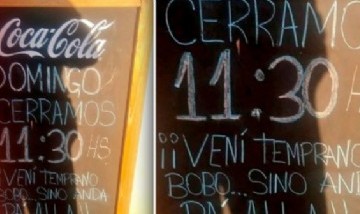 Coca-Cola
DOMINGO
CERRAMOS
11:30 HS
¡VENÍ TEMPRANO
BOBO... SINO ANDA
CERRAMO
11:30
¡¡VENÍ TEMPRANO
BOBO... SINO ANDA